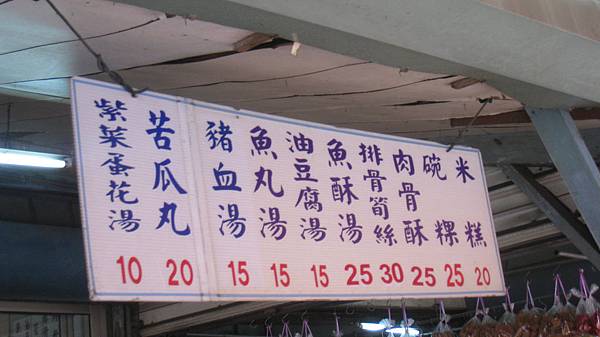 米糕 20
碗粿 25
肉骨酥 25
排骨筍絲 30
魚酥湯 25
油豆腐湯 15
魚丸湯 15
豬血湯 15
苦瓜丸 20
紫菜蛋花湯 10